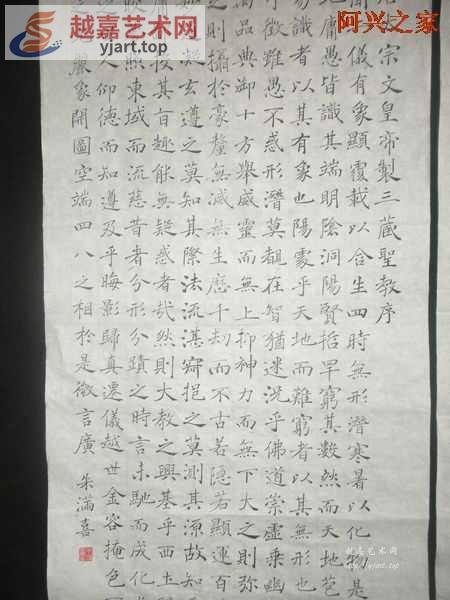 越嘉艺术网
yjart.top
阿兴之家
宗文皇帝製三藏聖教序
儀有象顯覆載以含生四時無形潛寒暑以化物是
庸愚皆識其端明陰洞陽賢哲罕窮其數然而天地苞
識者以其有象也陽處乎天地而難窮者以其無形也
可徵雖愚不惑形潛莫覩在智猶迷況乎佛道崇虛乘幽
品典御十方舉威靈而無上抑神力而無下大之則彌
之則攝於豪釐無滅無生歷千劫而不古若隱若顯運百
凝玄遵之莫知其際法流湛寂挹之莫測其源故知
投其旨趣能無疑惑者哉然則大教之興基乎西土
照東域而流慈昔者分形分蹟之時言未馳而成化
人仰德而知遵及乎晦影歸真遷儀越世金容掩色
麗象開圖空端四八之相於是微言廣
朱滿喜
越嘉艺术网
yjart.top